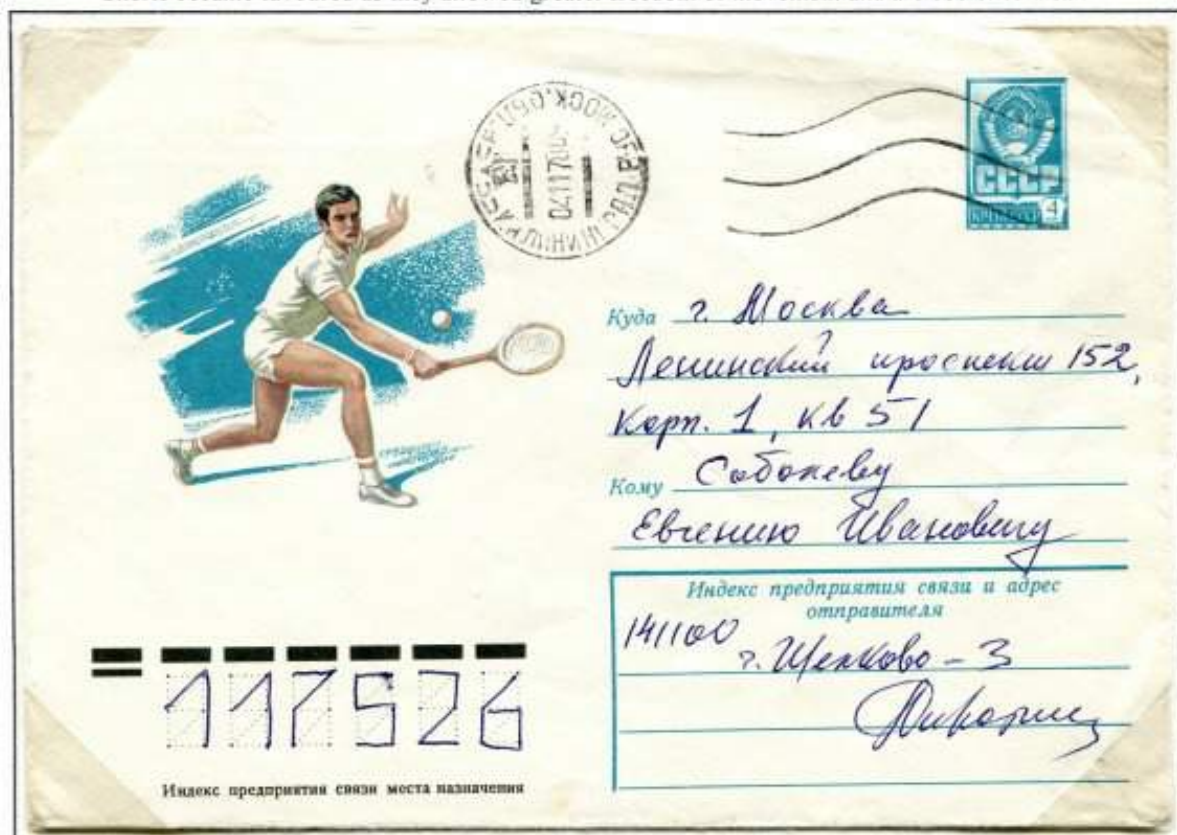 СССР
4
Куда г. Москва
Ленинский проспект 152,
корп. 1, кв 51
Кому Соболеву
Евгению Ивановичу
Индекс предприятия связи и адрес
отправителя
141100
г. Щелково - 3
117526
Индекс предприятия связи места назначения